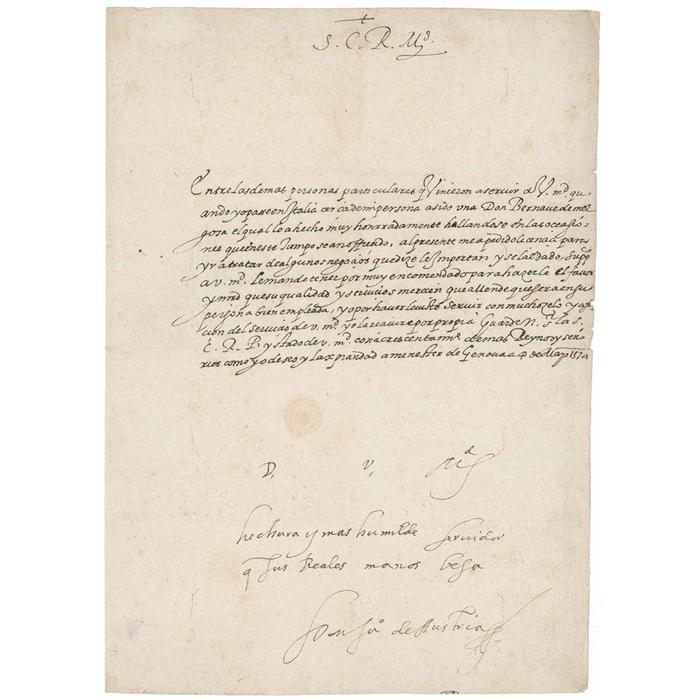 +
S. C. R. Md.
Entre las demas personas particulares q Vinieron a servir a V. md. qu-
ando yo passe en Italia cerca de mi persona a sido Una Don Bernave de
gosa el qual lo a hecho muy honrradamente hallandose en las ocasio-
nes que en este tiempo se an offrecido, al presente me a pedido licencia para
yr a tratar de algunos negocios que dize le Importan y se la e dado, Supp.co
a v. md. Le mande tener por muy encomendado para hazerle el favor
y mrd que su qualidad y servicios merecen que allende que sera en su
persona bien empleada, y o por haver le visto servir con mucho zelo y afi-
cion del Servicio de v. md. yo la recivire por propria Guarde N. S. la S.
C. R. P. y stado de v. md. con acrescentam.to de mas Reynos y señ-
rios como yo deseo y la xpiandad a menester de Genova a 4 de Mayo 1574
D. V. Md
hechura y mas humilde servidor
q sus Reales manos besa
Don Ju.o de Austria